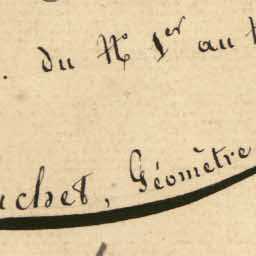 . du N° 1er au
uchet, Géomètre